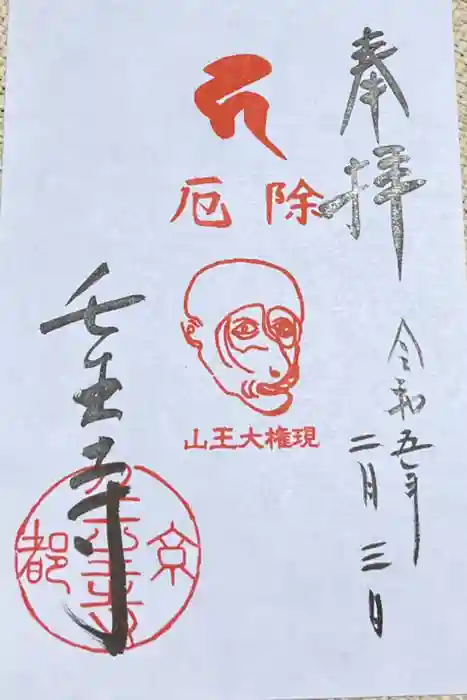 奉拝
令和五年
二月三日
厄除
山王大権現
壬生寺
京都